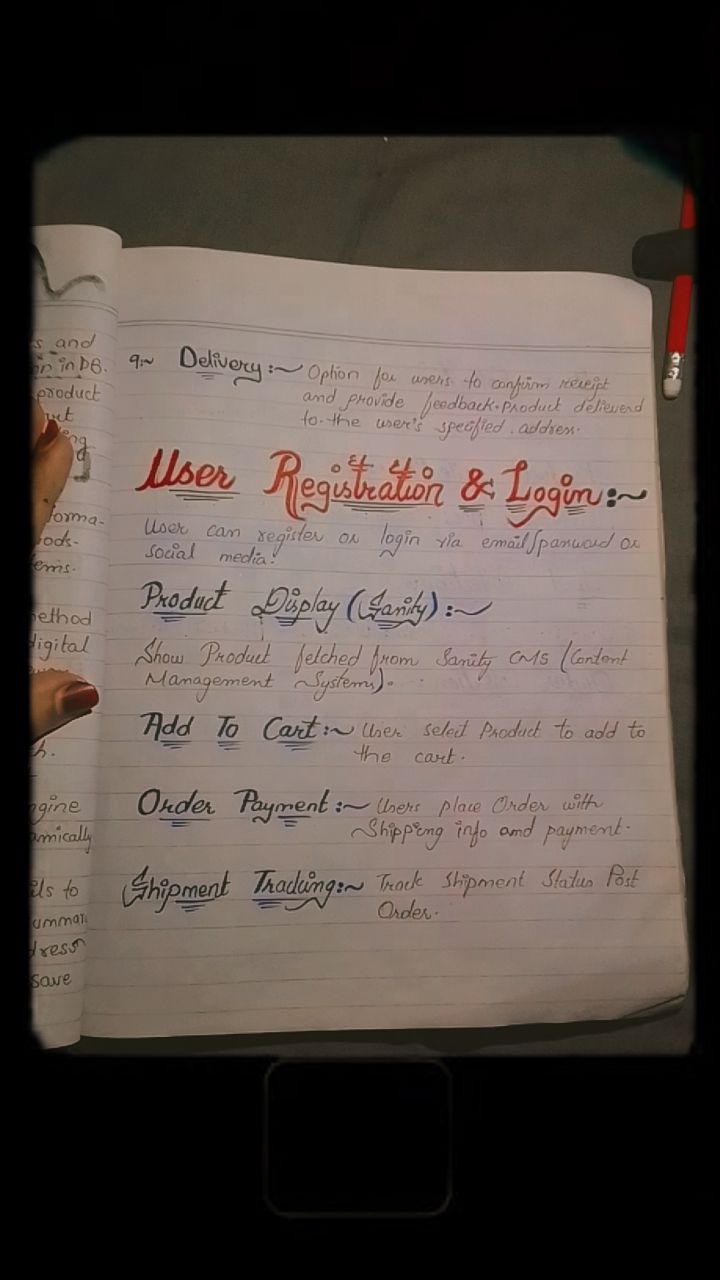 s and
in DB.
product
ing
forma-
ods-
ems.
ethod
digital
h.
gine
amically
ils to
ummar
dress
save
9:~ Delivery:~ Option for users to confirm receipt
and provide feedback. Product delieverd
to the user's specified address.
User Registration & Login:~
User can register or login via email/password or
social media.
Product Display (Sanity):~
Show Product fetched from Sanity CMS (Content
Management System).
Add To Cart:~ User select Product to add to
the cart.
Order Payment:~ Users place Order with
Shipping info and payment.
Shipment Tracking:~ Track Shipment Status Post
Order.